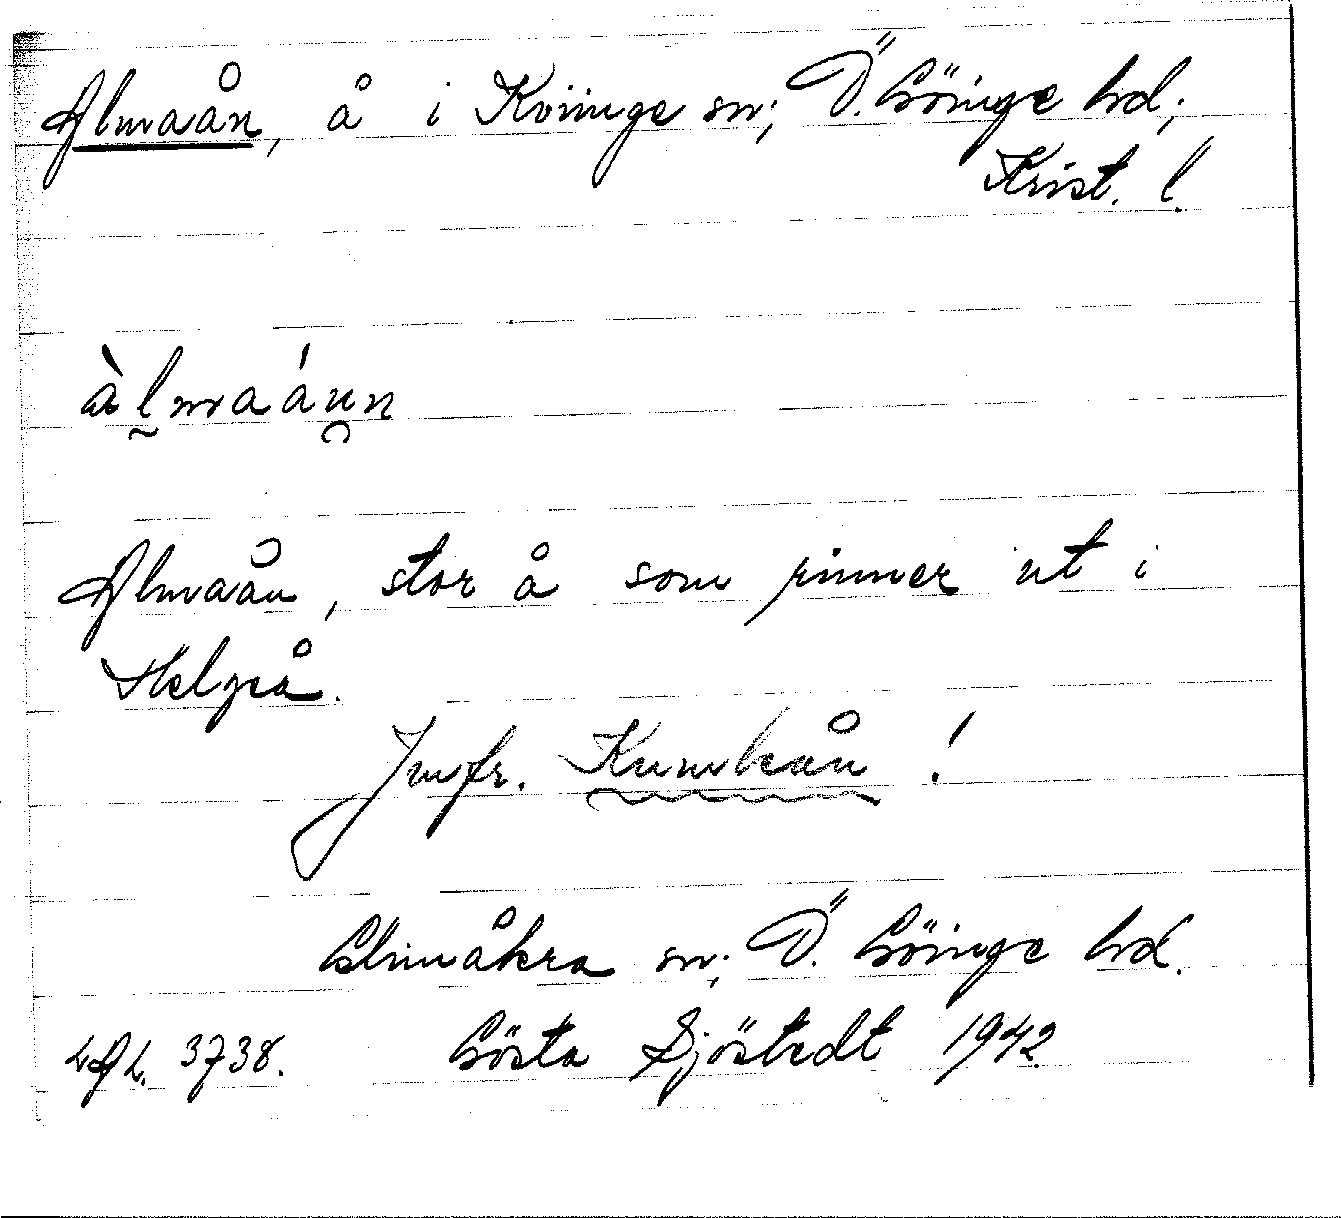 Almaån, å i Kviinge sn; Ö. Göinge hd;
Krist. l.
àlmaáun
Almaån, stor å som rinner ut i
Helgeå.
Jmfr. Kumleån !
Glimåkra sn; Ö. Göinge hd.
LAL. 3738. Gösta Sjöstedt 1942